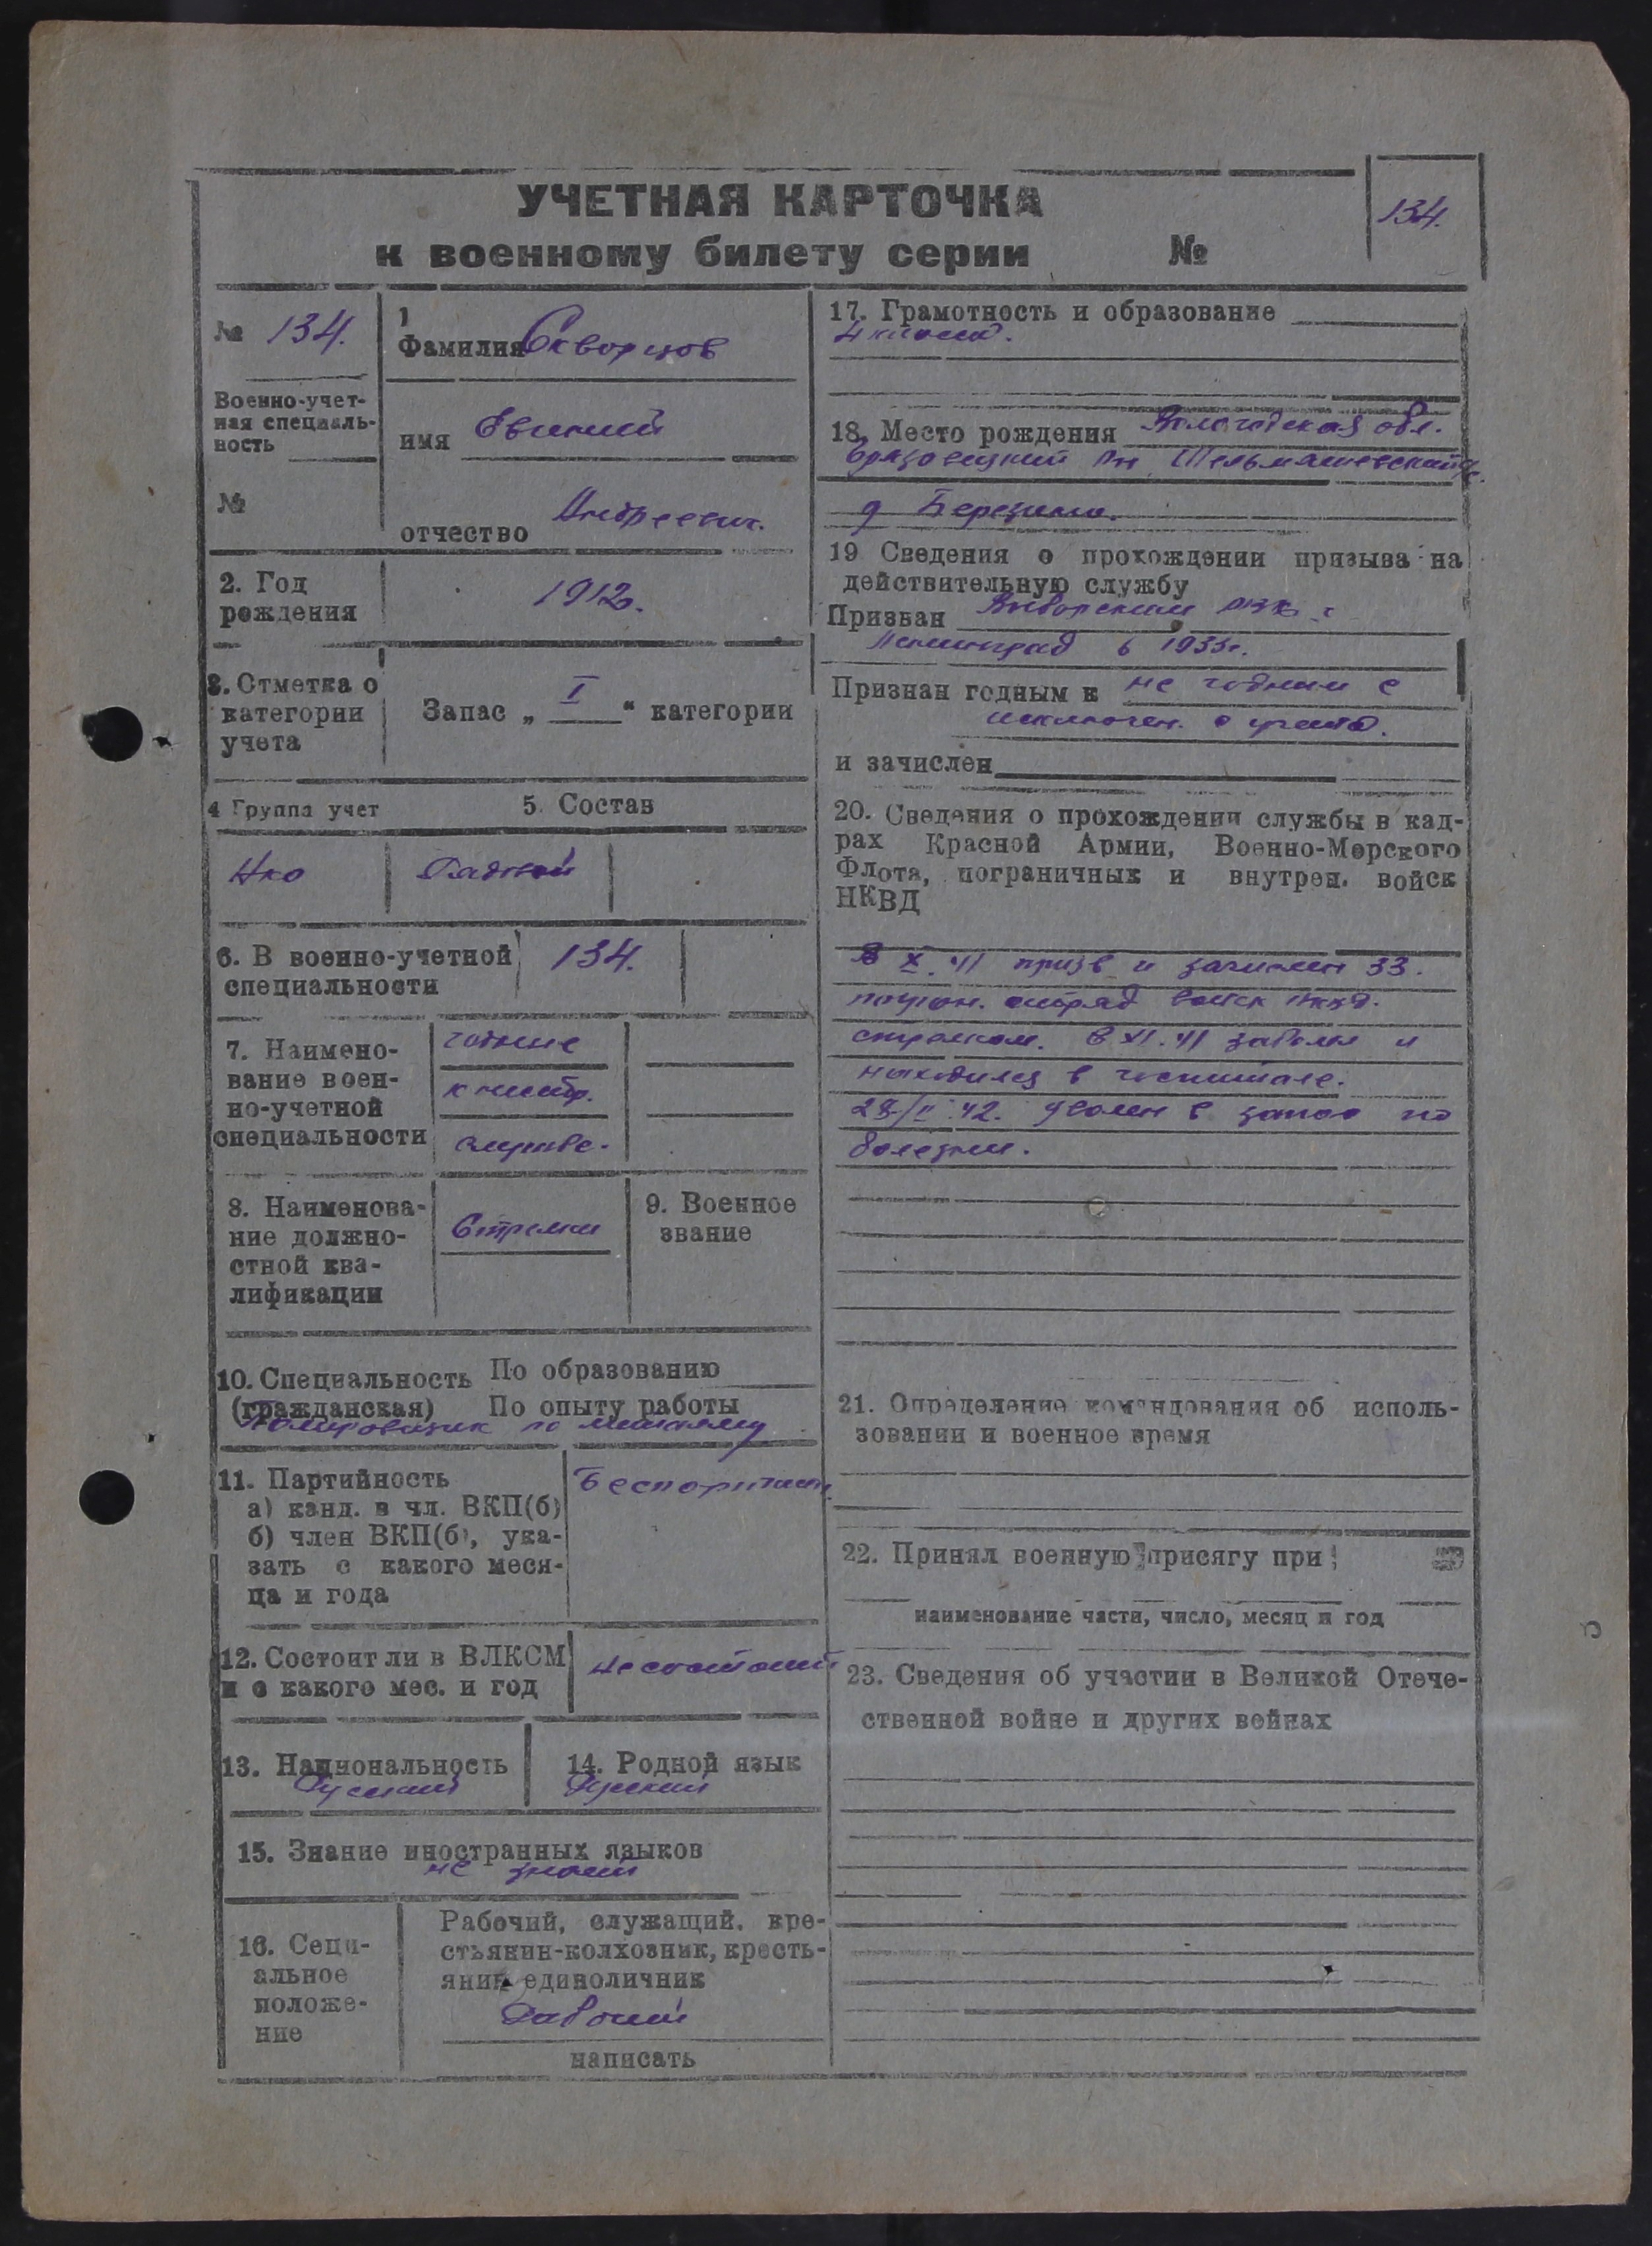 УЧЕТНАЯ КАРТОЧКА
к военному билету серии №
134.
№ 134.
Военно-учет-
ная специаль-
ность
№
1
Фамилия Скворцов
имя Евгений
отчество Андреевич.
2. Год
рождения
1912.
3. Отметка о
категории
учета
Запас „ I “ категории
4 Группа учет
5. Состав
Нко
Рядной
6. В военно-учетной
специальности
134.
7. Наимено-
вание воен-
но-учетной
специальности
годные
к нестр.
службе.
8. Наименова-
ние должно-
стной ква-
лификации
Стрелки
9. Военное
звание
10. Специальность
(гражданская)
По образованию
По опыту работы
по металлу
11. Партийность
а) канд. в чл. ВКП(б)
б) член ВКП(б), ука-
зать с какого меся-
ца и года
Беспартийн.
12. Состоит ли в ВЛКСМ
и с какого мес. и год
Не состоит
13. Национальность
Русский
14. Родной язык
Русский
15. Знание иностранных языков
не знает
16. Соци-
альное
положе-
ние
Рабочий, служащий, кре-
стьянин-колхозник, кресть-
янин единоличник
Рабочий
написать
17. Грамотность и образование
4 класса.
18. Место рождения Вологодская обл.
д Березино.
19 Сведения о прохождении призыва на
действительную службу
Призван Выборским РВК г
Ленинград в 1935г.
Признан годным к не годным с
исключен. с учета.
и зачислен
20. Сведения о прохождении службы в кад-
рах Красной Армии, Военно-Морского
Флота, пограничных и внутрен. войск
НКВД
В X.41 призв и зачислен 33.
погран. отряд войск НКВД.
стрелком. В XI.41 заболел и
находился в госпитале.
28/II 42. уволен в запас по
болезни.
21. Определение командования об исполь-
зовании и военное время
22. Принял военную присягу при
наименование части, число, месяц и год
23. Сведения об участии в Великой Отече-
ственной войне и других войнах